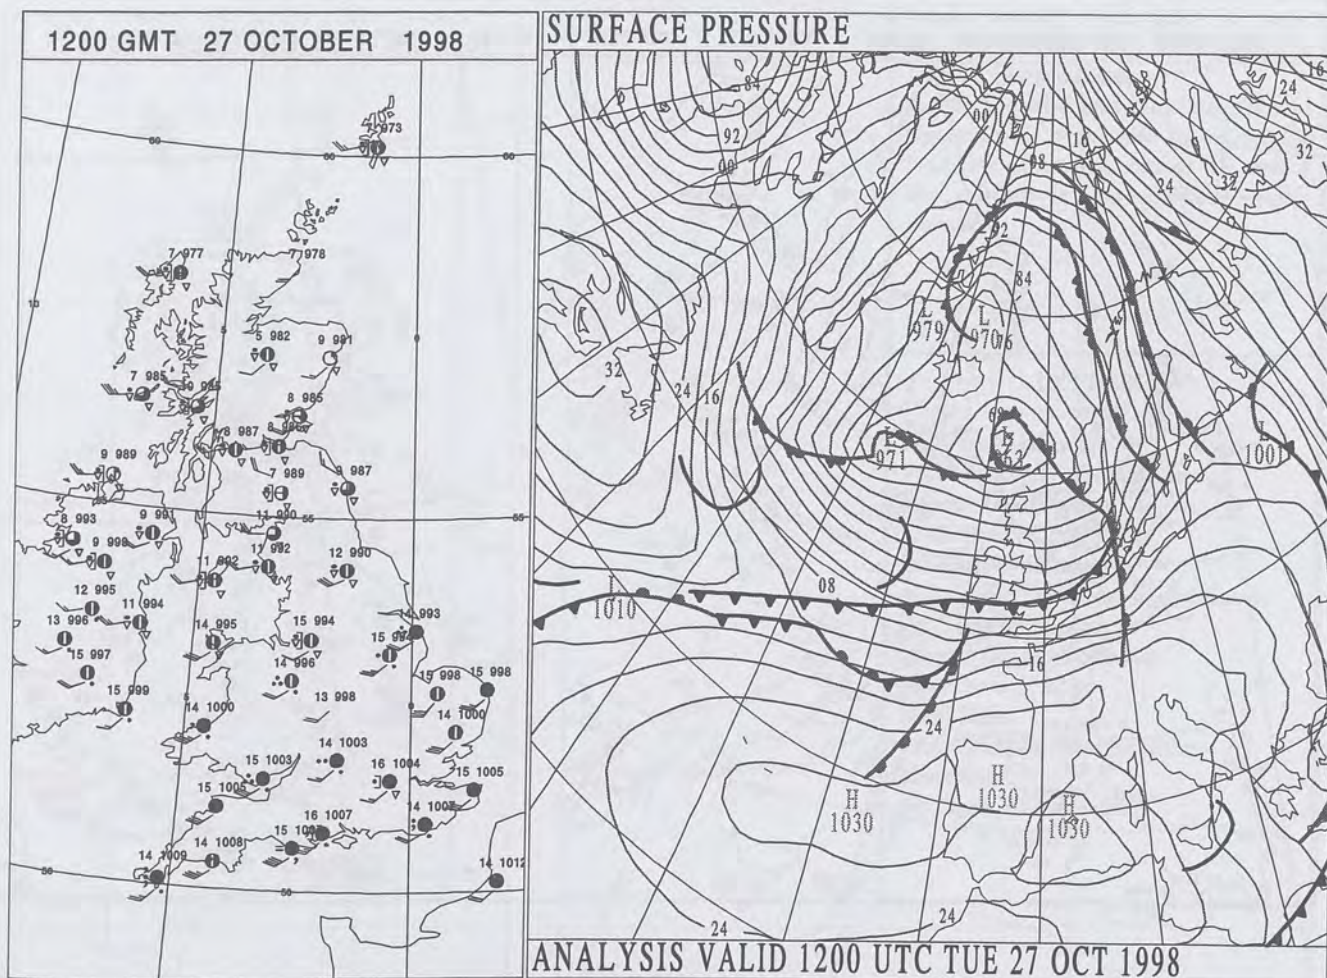 1200 GMT 27 OCTOBER 1998
7 973
60 60 60
7 977
7 978
10
5 982
9 981
0
7 985
8 985
8 987
9 989
7 989
9 987
55 55
8 993
9 991
11 990
9 998
11 992
11 992
12 990
12 995
11 994
14 993
13 996
14 995
15 994
15 997
14 996
15 998
15 998
15 999
5
13 998
0
14 1000
14 1000
14 1003
15 1003
16 1004
15 1005
15 1005
16 1007
14 1007
14 1008
14 1009
14 1012
50 50
SURFACE PRESSURE
08
84
24
16
92
00
00
16
32
08
32
24
92
84
L
979
L
970
76
32
24
16
L
971
L
L
1001
08
L
1010
16
24
H
1030
H
1030
H
1030
24
24
ANALYSIS VALID 1200 UTC TUE 27 OCT 1998